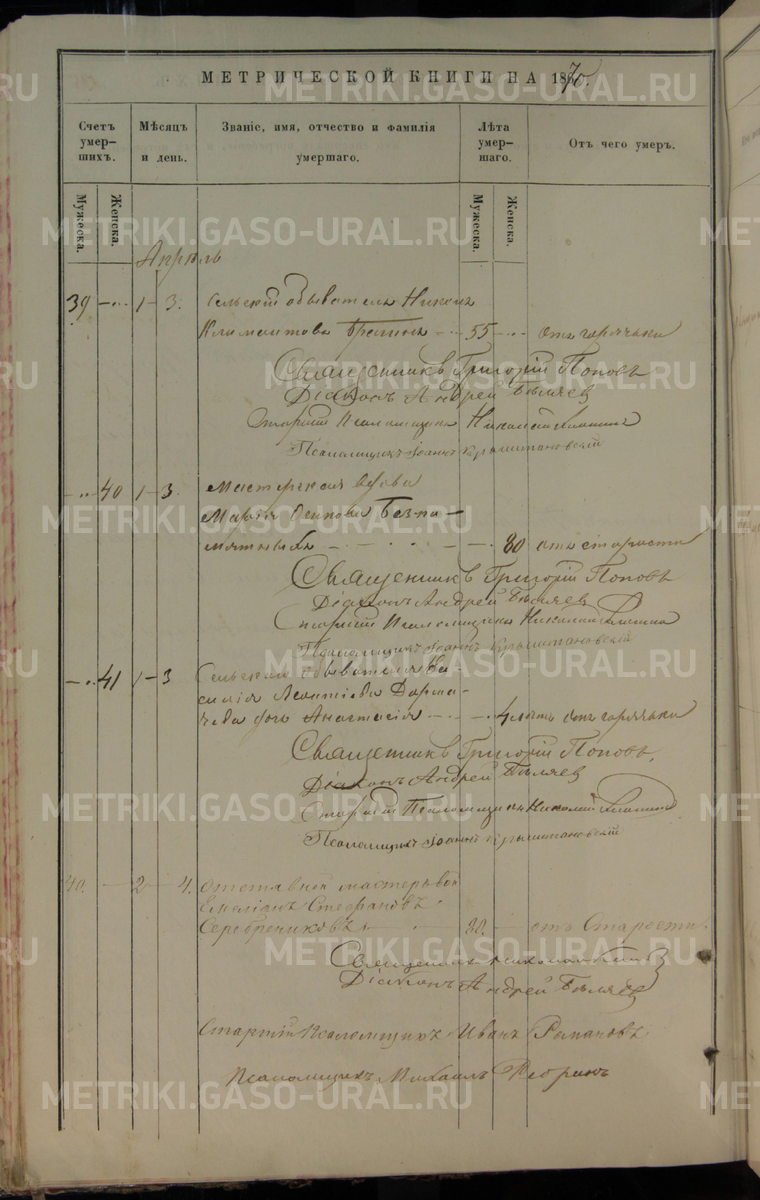 МЕТРИЧЕСКОЙ КНИГИ НА 1870.
Счетъ умер-шихъ.
Мѣсяцъ и день.
Званіе, имя, отчество и фамилія умершаго.
Лѣта умер-шаго.
Отъ чего умеръ.
Мужеска.
Женска.
Мужеска.
Женска.
Апрѣль
39 1 3. Сельскій обыватель
Климентовъ Брагинъ 55 отъ горячки
Священникъ Григорій Поповъ
Діаконъ Андрей Бѣляевъ
Старшій Псаломщикъ Николай
Псаломщикъ Іоаннъ Крыштановскій
40 1 3. Мастерская вдова
Марія Осипова Безпа-
мятныхъ 80 отъ старости
Священникъ Григорій Поповъ
Діаконъ Андрей Бѣляевъ
Старшій Псаломщикъ Николай
Псаломщикъ Іоаннъ Крыштановскій
41 1 3 Сельскаго обывателя Ва-
силія Леонтіева
дочь Анастасія 4 отъ горячки
Священникъ Григорій Поповъ.
Діаконъ Андрей Бѣляев
Старшій Псаломщикъ Николай
Псаломщикъ Іоаннъ Крыштановскій
40. 2 4. Отставной мастеровой
Емеліанъ Стефановъ
Серебрениковъ 80. отъ Старости.
Священникъ
Діаконъ Андрей Бѣляев
Старшій Псаломщикъ Иванъ Романовъ
Псаломщикъ Михаилъ
METRIKI.GASO-URAL.RU